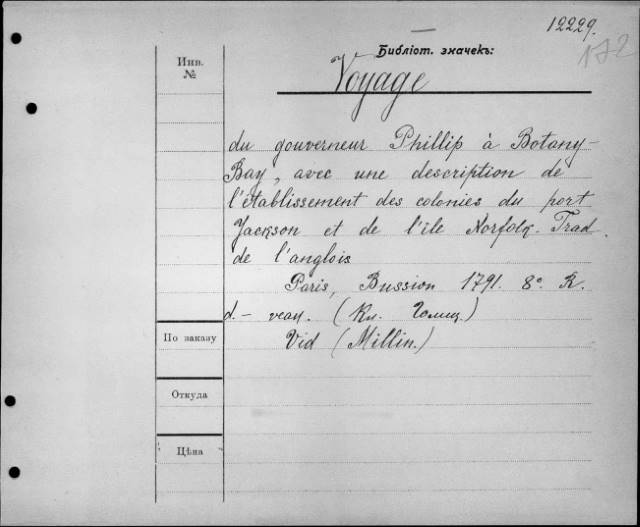 12229.
172
Библіот. значекъ:
Инв.
№
Voyage
du gouverneur Phillip à Botany-
Bay, avec une description de
l'établissement des colonies du port
Jackson et de l'île Norfolk. Trad.
de l'anglois
Paris, Bussion 1791. 8º. R.
d.- veau. (Кн. Голиц.)
По заказу
Vid (Millin.)
Откуда
Цѣна